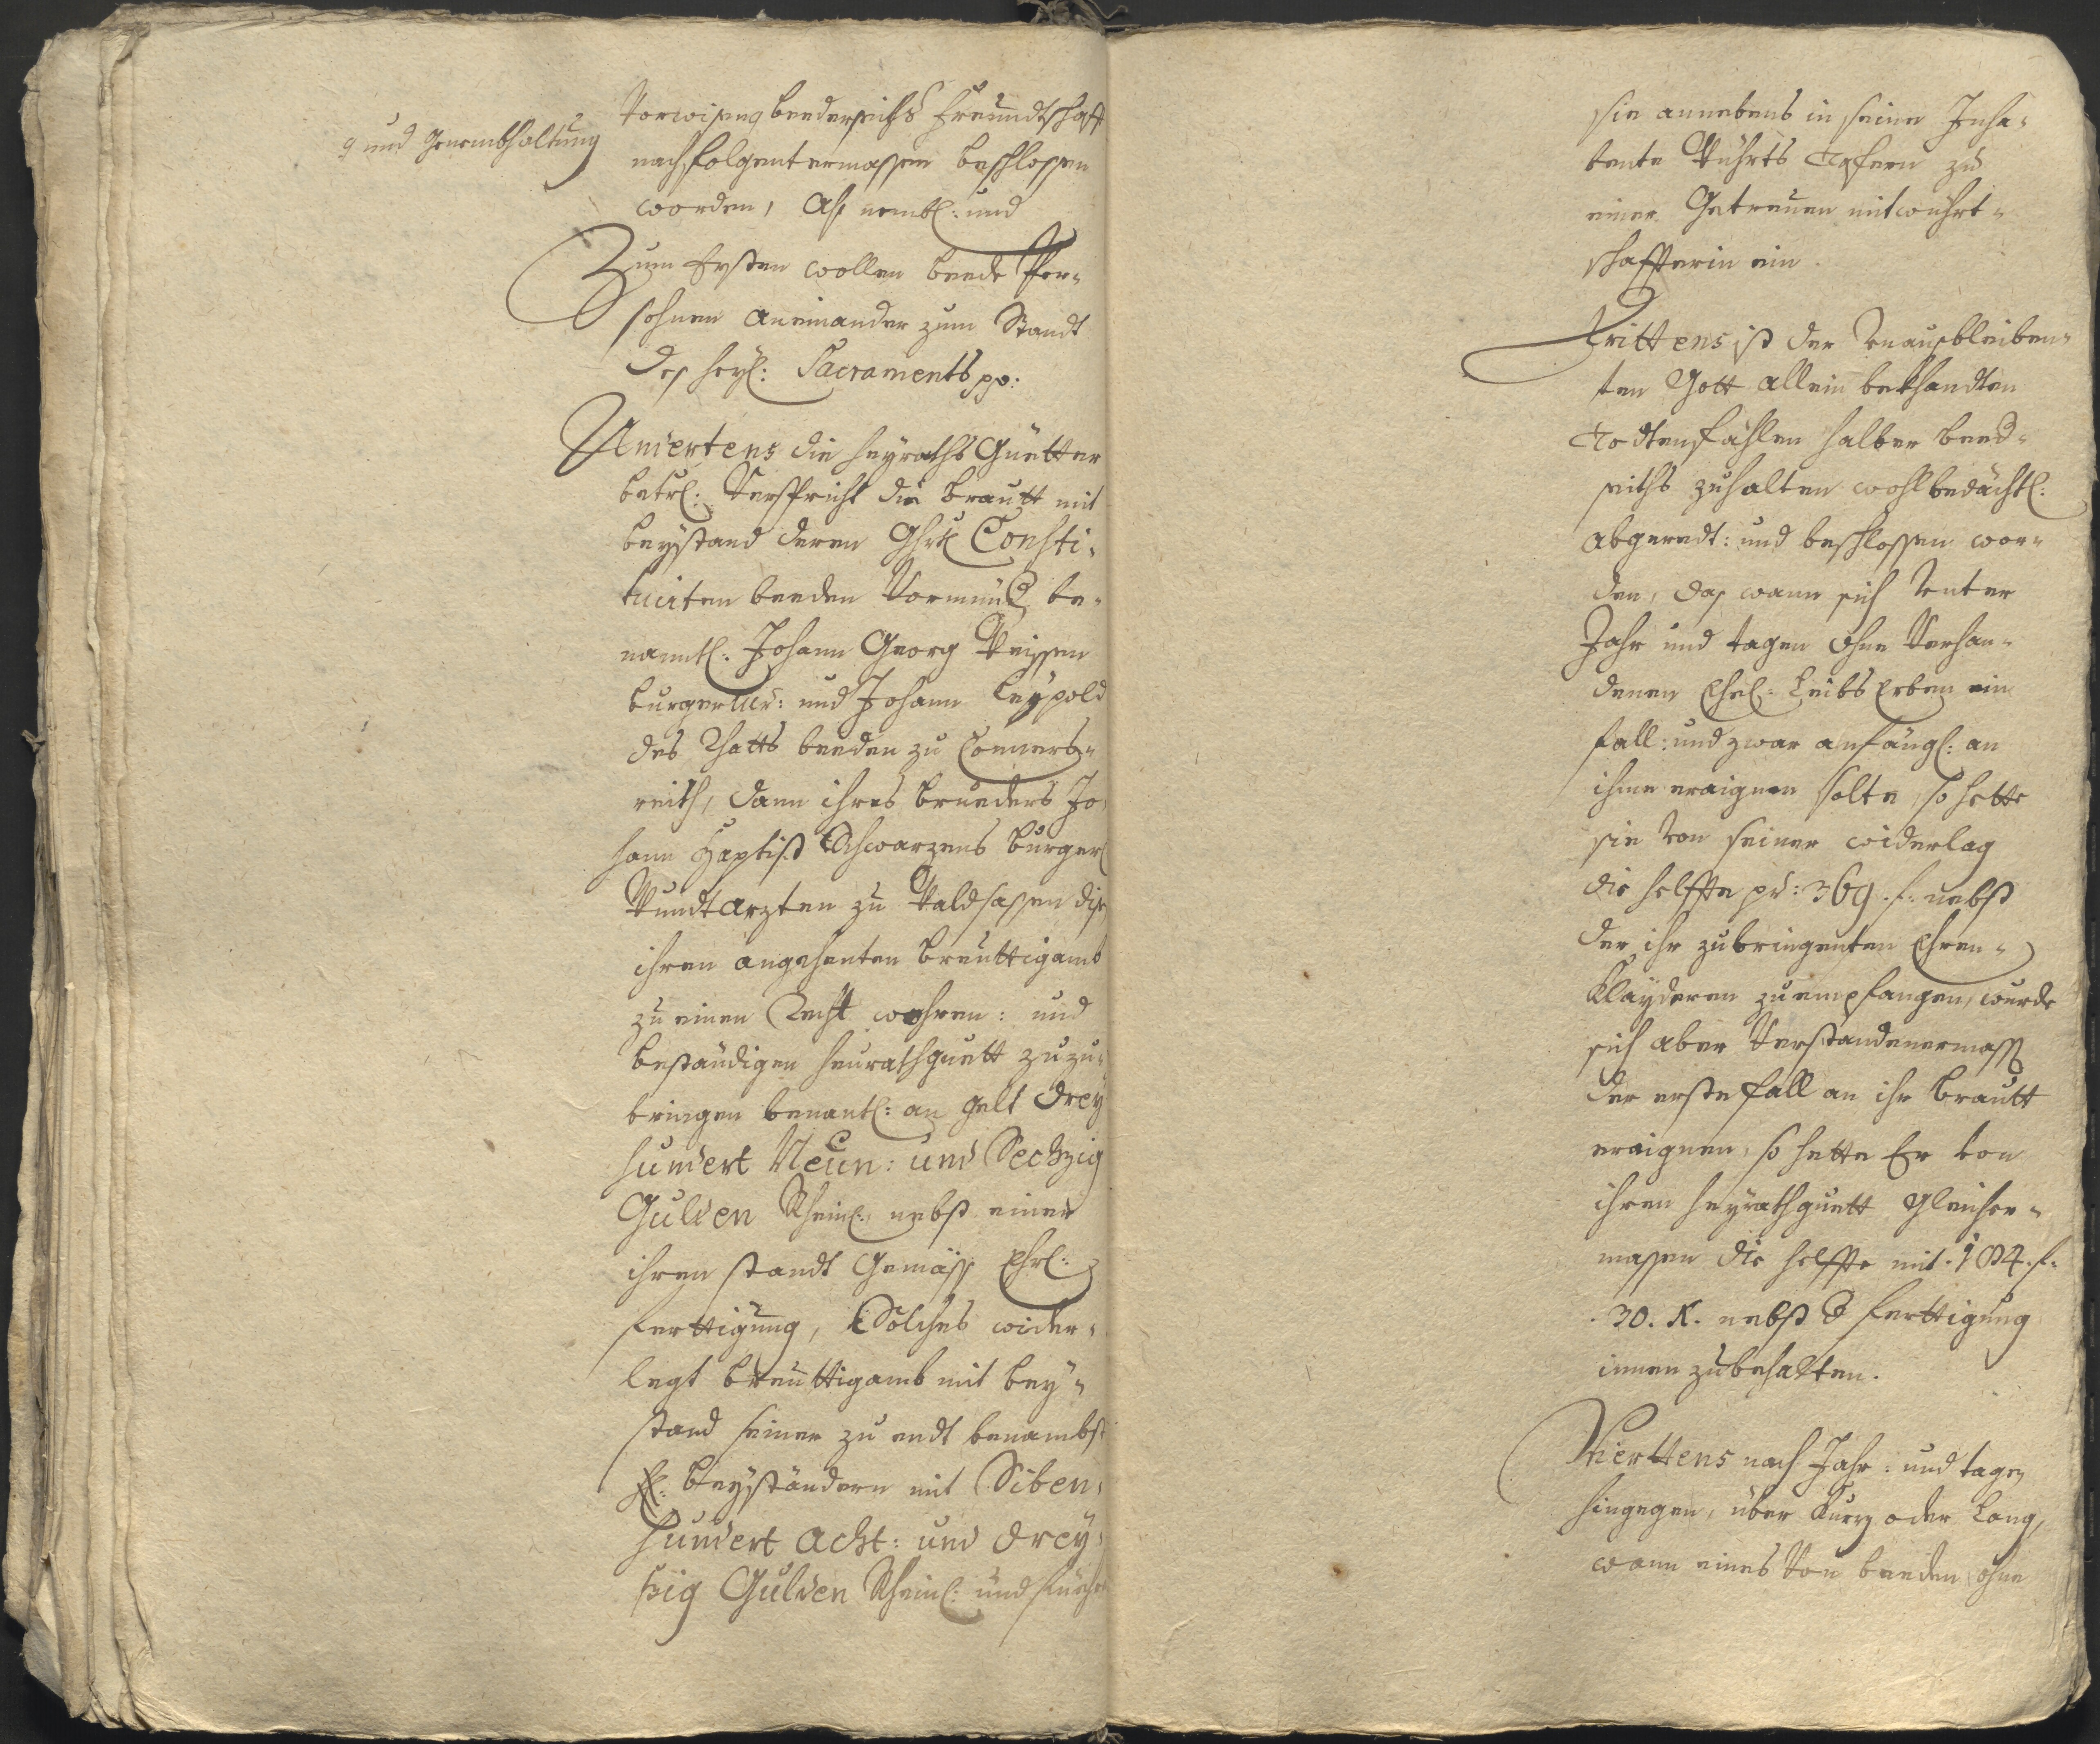 q und Genembhaltung
Vorwisen q beederseiths Freundtschafft
nachfolgentermassen beschlossen
worden, Alß nembl: und
Zum Ersten wollen beede Per-
sohnen aneinander zum Standt
des heyl: Sacraments pp:
Andertens die heyraths Güetter
betrl: Verspricht die Brautt mit
beystand deren Ghrtl Consti-
tuirten beeden Vormünd, be-
nanntl: Johann Georg Weissen
burgerlich: und Johann Leypold
des Raths beeden zu Conners-
reith, dann ihres brueders Jo-
hann Baptist Schwarzens burgerl
Wundtarzten zu Waldsassen disen
ihren angehenten breuttigamb
zu einen Recht wahren: und
beständigen heurathguett zuzu-
bringen benantl: an gelt drey
hundert Neun: und Sechzig
Gulden Rheinl:, nebst einer
ihren standt Gemäss Ehrl:
Ferttigung, Solches wider-
legt breuttigamb mit bey-
stand seiner zu endt benambst
H: beyständern mit Siben-
hundert Acht: und drey-
ssig Gulden Rheinl: und führt
sie annebens in seine Inha-
bente Würths Tafern zu
einer Getreuen mitwührt-
schaffterin ein.
Drittens ist der Unausbleiben-
ten Gott allein bekhandten
Todtensfählen halber beed-
seiths zuhalten wohlbedächtl:
abgeredt: und beschlossen wor-
den, das wann sich Unter
Jahr und tagen ohne Verhan-
denen Ehel: Leibs Erben ein
fall: und zwar anfängl: an
ihme eraignen solte, so hette
sie von seiner widerlag
die helffte pr: 369. f: nebst
der ihr zubringenten Ehren-
Klayderen zu empfangen, wurde
sich aber Verstandenermass
der erste fall an ihr Brautt
eraignen, so hette Er von
ihren heyrathguett gleicher-
massen die helffte mit 184. f:
30. K. nebst d Ferttigung
innen zubehalten.
Vierttens nach Jahr: und tagen
hingegen, über Kurz oder Lang,
wann eines Von beeden ohne